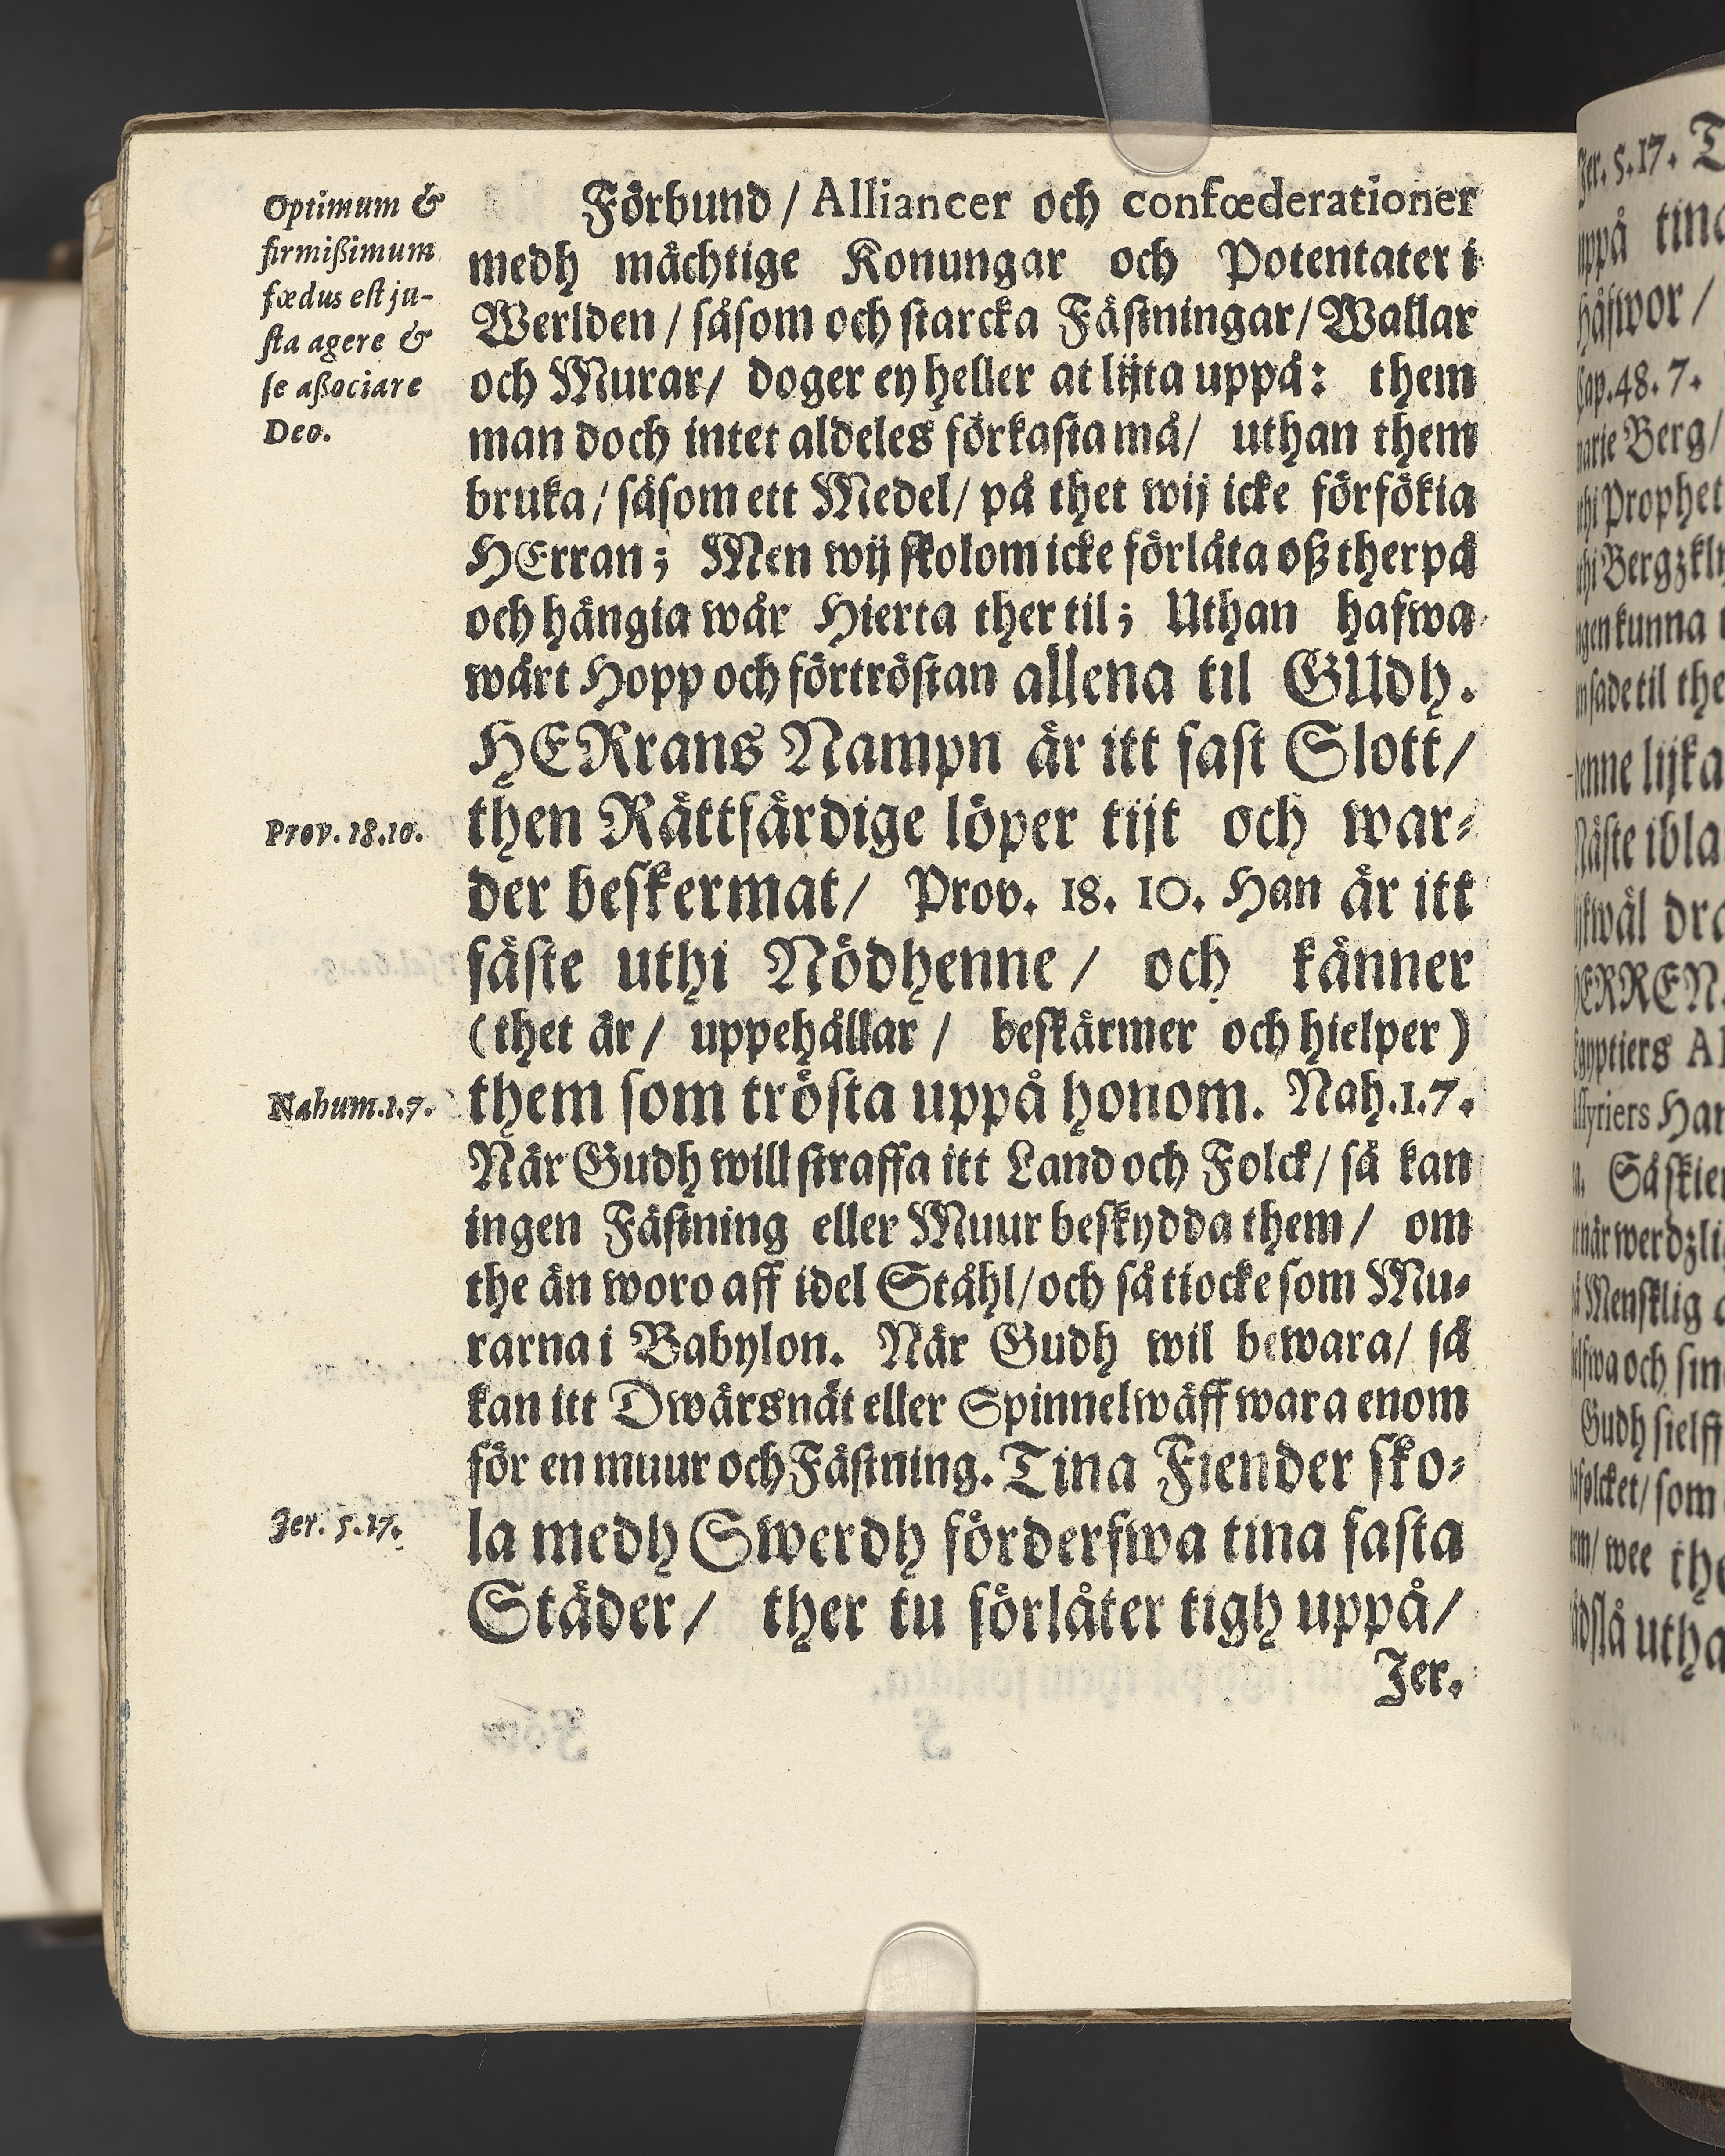 Optimum &
firmißimum
fœdus est ju-
sta agere &
se aßociare
Deo.
Förbund / Alliancer och confœderationer
medh mächtige Konungar och Potentater i
Werlden / såsom och starcka Fästningar / Wallar
och Murar / doger ey heller at lijta uppå: them
man doch intet aldeles förkasta må / uthan them
bruka / såsom ett Medel / på thet wij icke försökia
HErran; Men wij skolom icke förlåta oß therpå
och hängia wår Hierta ther til; Uthan hafwa
wårt Hopp och förtröstan allena til GUdh.
HERrans Nampn är itt fast Slott /
Prov. 18.10.
then Rättfärdige löper tijt och war-
der beskermat / Prov. 18. 10. Han är itt
fäste uthi Nödhenne / och känner
(thet är / uppehållar / beskärmer och hielper)
Nahum.1.7.
them som trösta uppå honom. Nah.1.7.
När Gudh will straffa itt Land och Folck / så kan
ingen Fästning eller Muur beskydda them / om
the än woro aff idel Ståhl / och så tiocke som Mu-
rarna i Babylon. När Gudh wil bewara / så
kan itt Dwärsnät eller Spinnelwäff wara enom
för en muur och Fästning. Tina Fiender sko-
Jer. 5.17.
la medh Swerdh förderfwa tina fasta
Städer / ther tu förlåter tigh uppå /
Jer.
Jer. 5.17. T
uppå
håfwor /
Cap.48. 7.
Berg /
Prophet
kunna
sade til
lijka
Näste
HERREN
Har
Så
när
Mensklig
och
Gudh sielff
som
wee